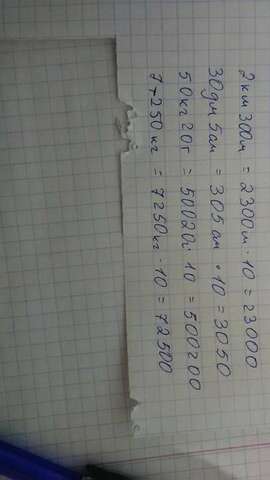 2 км 300 м = 2300 м · 10 = 23000
30 дм 5 см = 305 см · 10 = 3050
50 кг 20 г = 50020 г · 10 = 500200
7 т 250 кг = 7250 кг · 10 = 72500